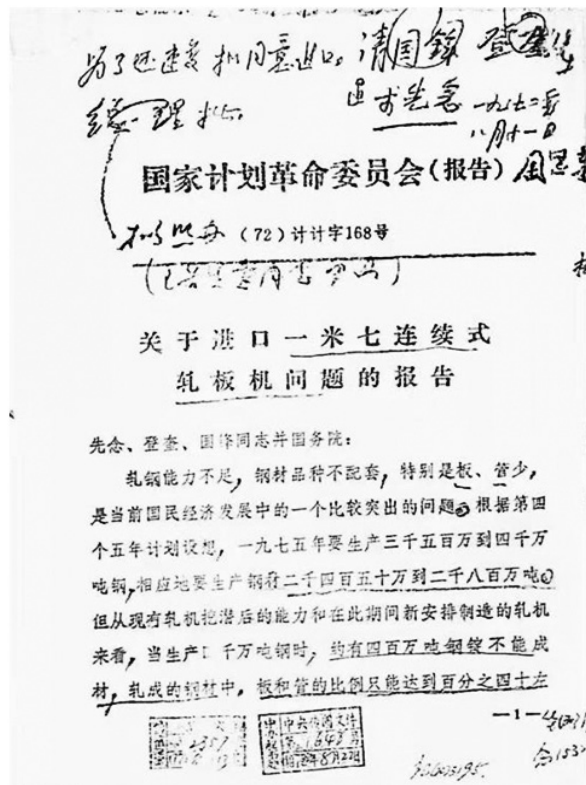 为了迅速 拟同意进口。请国锋 登奎
先念
总理批。
一九七二年
八月十一日
国家计划革命委员会(报告)
周恩
(72)计计字168号
关于进口一米七连续式
轧板机问题的报告
先念、登奎、国锋同志并国务院:
轧钢能力不足,钢材品种不配套,特别是板、管少,
是当前国民经济发展中的一个比较突出的问题。根据第四
个五年计划设想,一九七五年要生产三千五百万到四千万
吨钢,相应地要生产钢材二千四百五十万到二千八百万吨。
但从现有轧机挖潜后的能力和在此期间新安排制造的轧机
来看,当生产 千万吨钢时,约有四百万吨钢锭不能成
材,轧成的钢材中,板和管的比例只能达到百分之四十左
—1—
中央传阅文件
1648号
8月22日